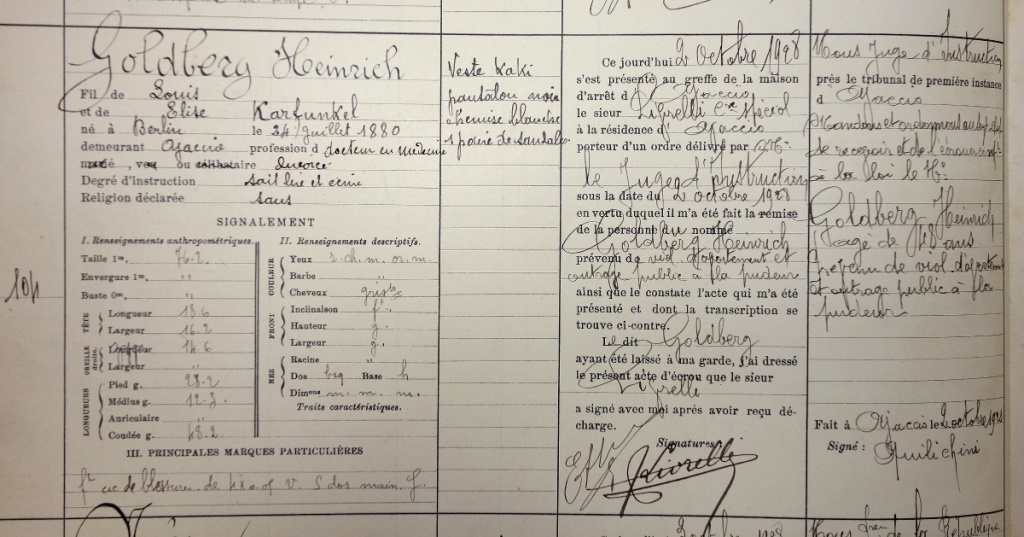 Goldberg Heinrich
Fil de Louis
et de Elise Karfunkel
né à Berlin le 24 juillet 1880
demeurant Ajaccio profession d docteur en médecine
marié, veuf ou célibataire divorcé
Degré d'instruction sait lire et écrire
Religion déclarée sans
SIGNALEMENT
I. Renseignements anthropométriques.
Taille 1m, 76.2
Envergure 1m, "
Buste 0m, "
TÊTE
Longueur 18.6
Largeur 16.2
OREILLE droite.
Longueur 14.6
Largeur
LONGUEURS
Pied g. 28.2
Médius g. 12.3
Auriculaire "
Coudée g. 48.2
II. Renseignements descriptifs.
COULEUR
Yeux r. ch. m. or. m.
Barbe "
Cheveux gris
FRONT
Inclinaison f.
Hauteur g.
Largeur g.
NEZ
Racine "
Dos bsq Base h
Dimens m. m. m.
Traits caractéristiques.
III. PRINCIPALES MARQUES PARTICULIÈRES
cic de blessure de V. S dos main g.
104
Veste Kaki
pantalon noir
chemise blanche
1 paire de sandales
Ce jourd'hui 2 Octobre 1928
s'est présenté au greffe de la maison
d'arrêt d'Ajaccio
le sieur Spécial
à la résidence d'Ajaccio
porteur d'un ordre délivré par Mr
le Juge d'Instruction
sous la date du 2 octobre 1928
en vertu duquel il m'a été fait la remise
de la personne du nommé
Goldberg Heinrich
prévenu de viol d'apartement et
outrage public à la pudeur
ainsi que le constate l'acte qui m'a été
présenté et dont la transcription se
trouve ci-contre.
Le dit Goldberg
ayant été laissé à ma garde, j'ai dressé
le présent acte d'écrou que le sieur
a signé avec moi après avoir reçu dé-
charge.
Signatures:
Nous Juge d'Instruction
près le tribunal de première instance
d Ajaccio
Mandons et ordonnons au
de recevoir et de l'écrouer
à la loi le Né
Goldberg Heinrich
agé de 48 ans
Prévenu de viol d'apartement
et outrage public à la
pudeur
Fait à Ajaccio le 2 octobre 1928
Signé : Quilichini